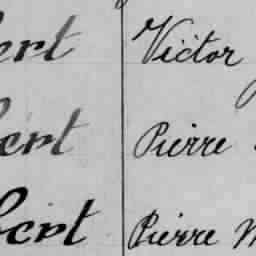 ert Victor
bert Pierre
bert Pierre M